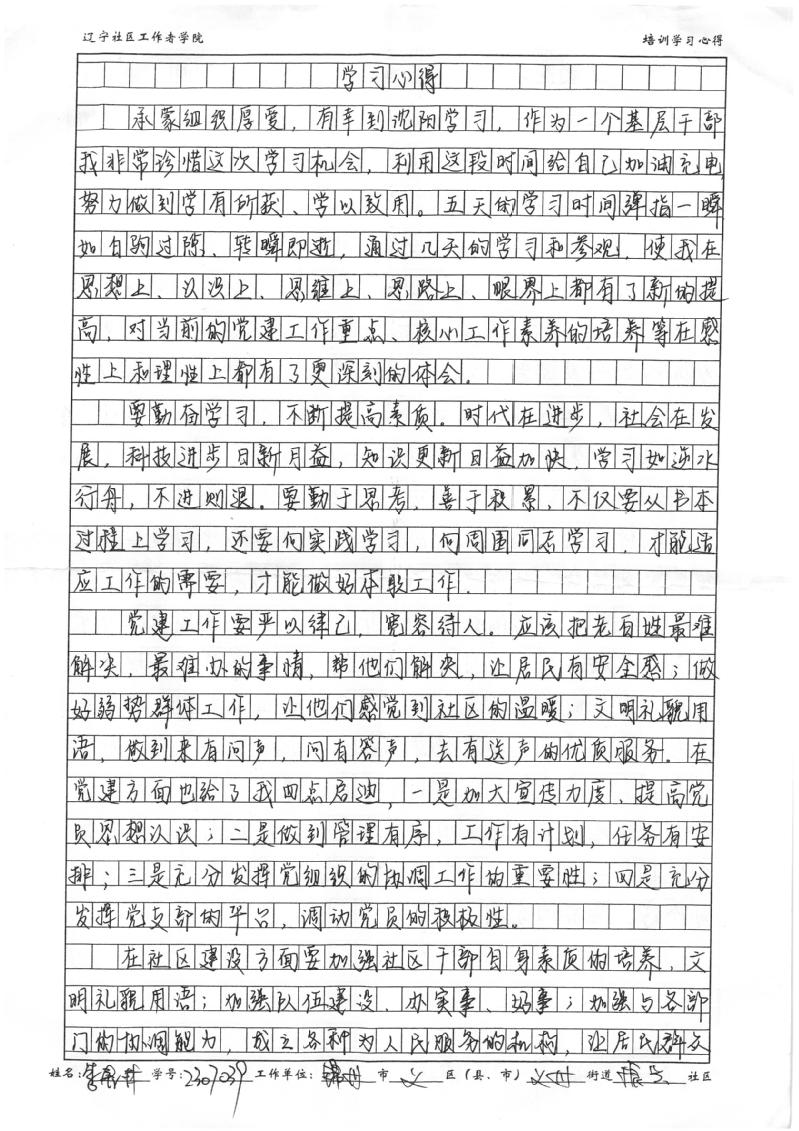 辽宁社区工作者学院 培训学习心得
学习心得
承蒙组织厚爱，有幸到沈阳学习，作为一个基层干部
我非常珍惜这次学习机会，利用这段时间给自己加油充电，
努力做到学有所获、学以致用。五天的学习时间弹指一瞬
如白驹过隙、转瞬即逝，通过几天的学习和参观，使我在
思想上、认识上、思维上、思路上、眼界上都有了新的提
高，对当前的党建工作重点、核心工作素养的培养等在感
性上和理性上都有了更深刻的体会。
要勤奋学习，不断提高素质。时代在进步，社会在发
展，科技进步日新月益，知识更新日益加快，学习如逆水
行舟，不进则退。要勤于思考，善于积累，不仅要从书本
过程上学习，还要向实践学习，向周围同志学习，才能适
应工作的需要，才能做好本职工作.
党建工作要严以律己，宽容待人。应该把老百姓最难
解决，最难办的事情，帮他们解决，让居民有安全感；做
好弱势群体工作，让他们感觉到社区的温暖；文明礼貌用
语，做到来有问声，问有答声，去有送声的优质服务.在
党建方面也给了我四点启迪，一是加大宣传力度、提高党
员思想认识；二是做到管理有序，工作有计划，任务有安
排；三是充分发挥党组织的协调工作的重要性；四是充分
发挥党支部的平台，调动党员的积极性。
在社区建设方面要加强社区干部自身素质的培养，文
明礼貌用语；加强队伍建设、办实事、好事；加强与各部
门的协调能力，成立各种为人民服务的机构，让居民群众
姓名： 学号：2307039 工作单位：锦州 市 义 区（县、市） 义州 街道 社区